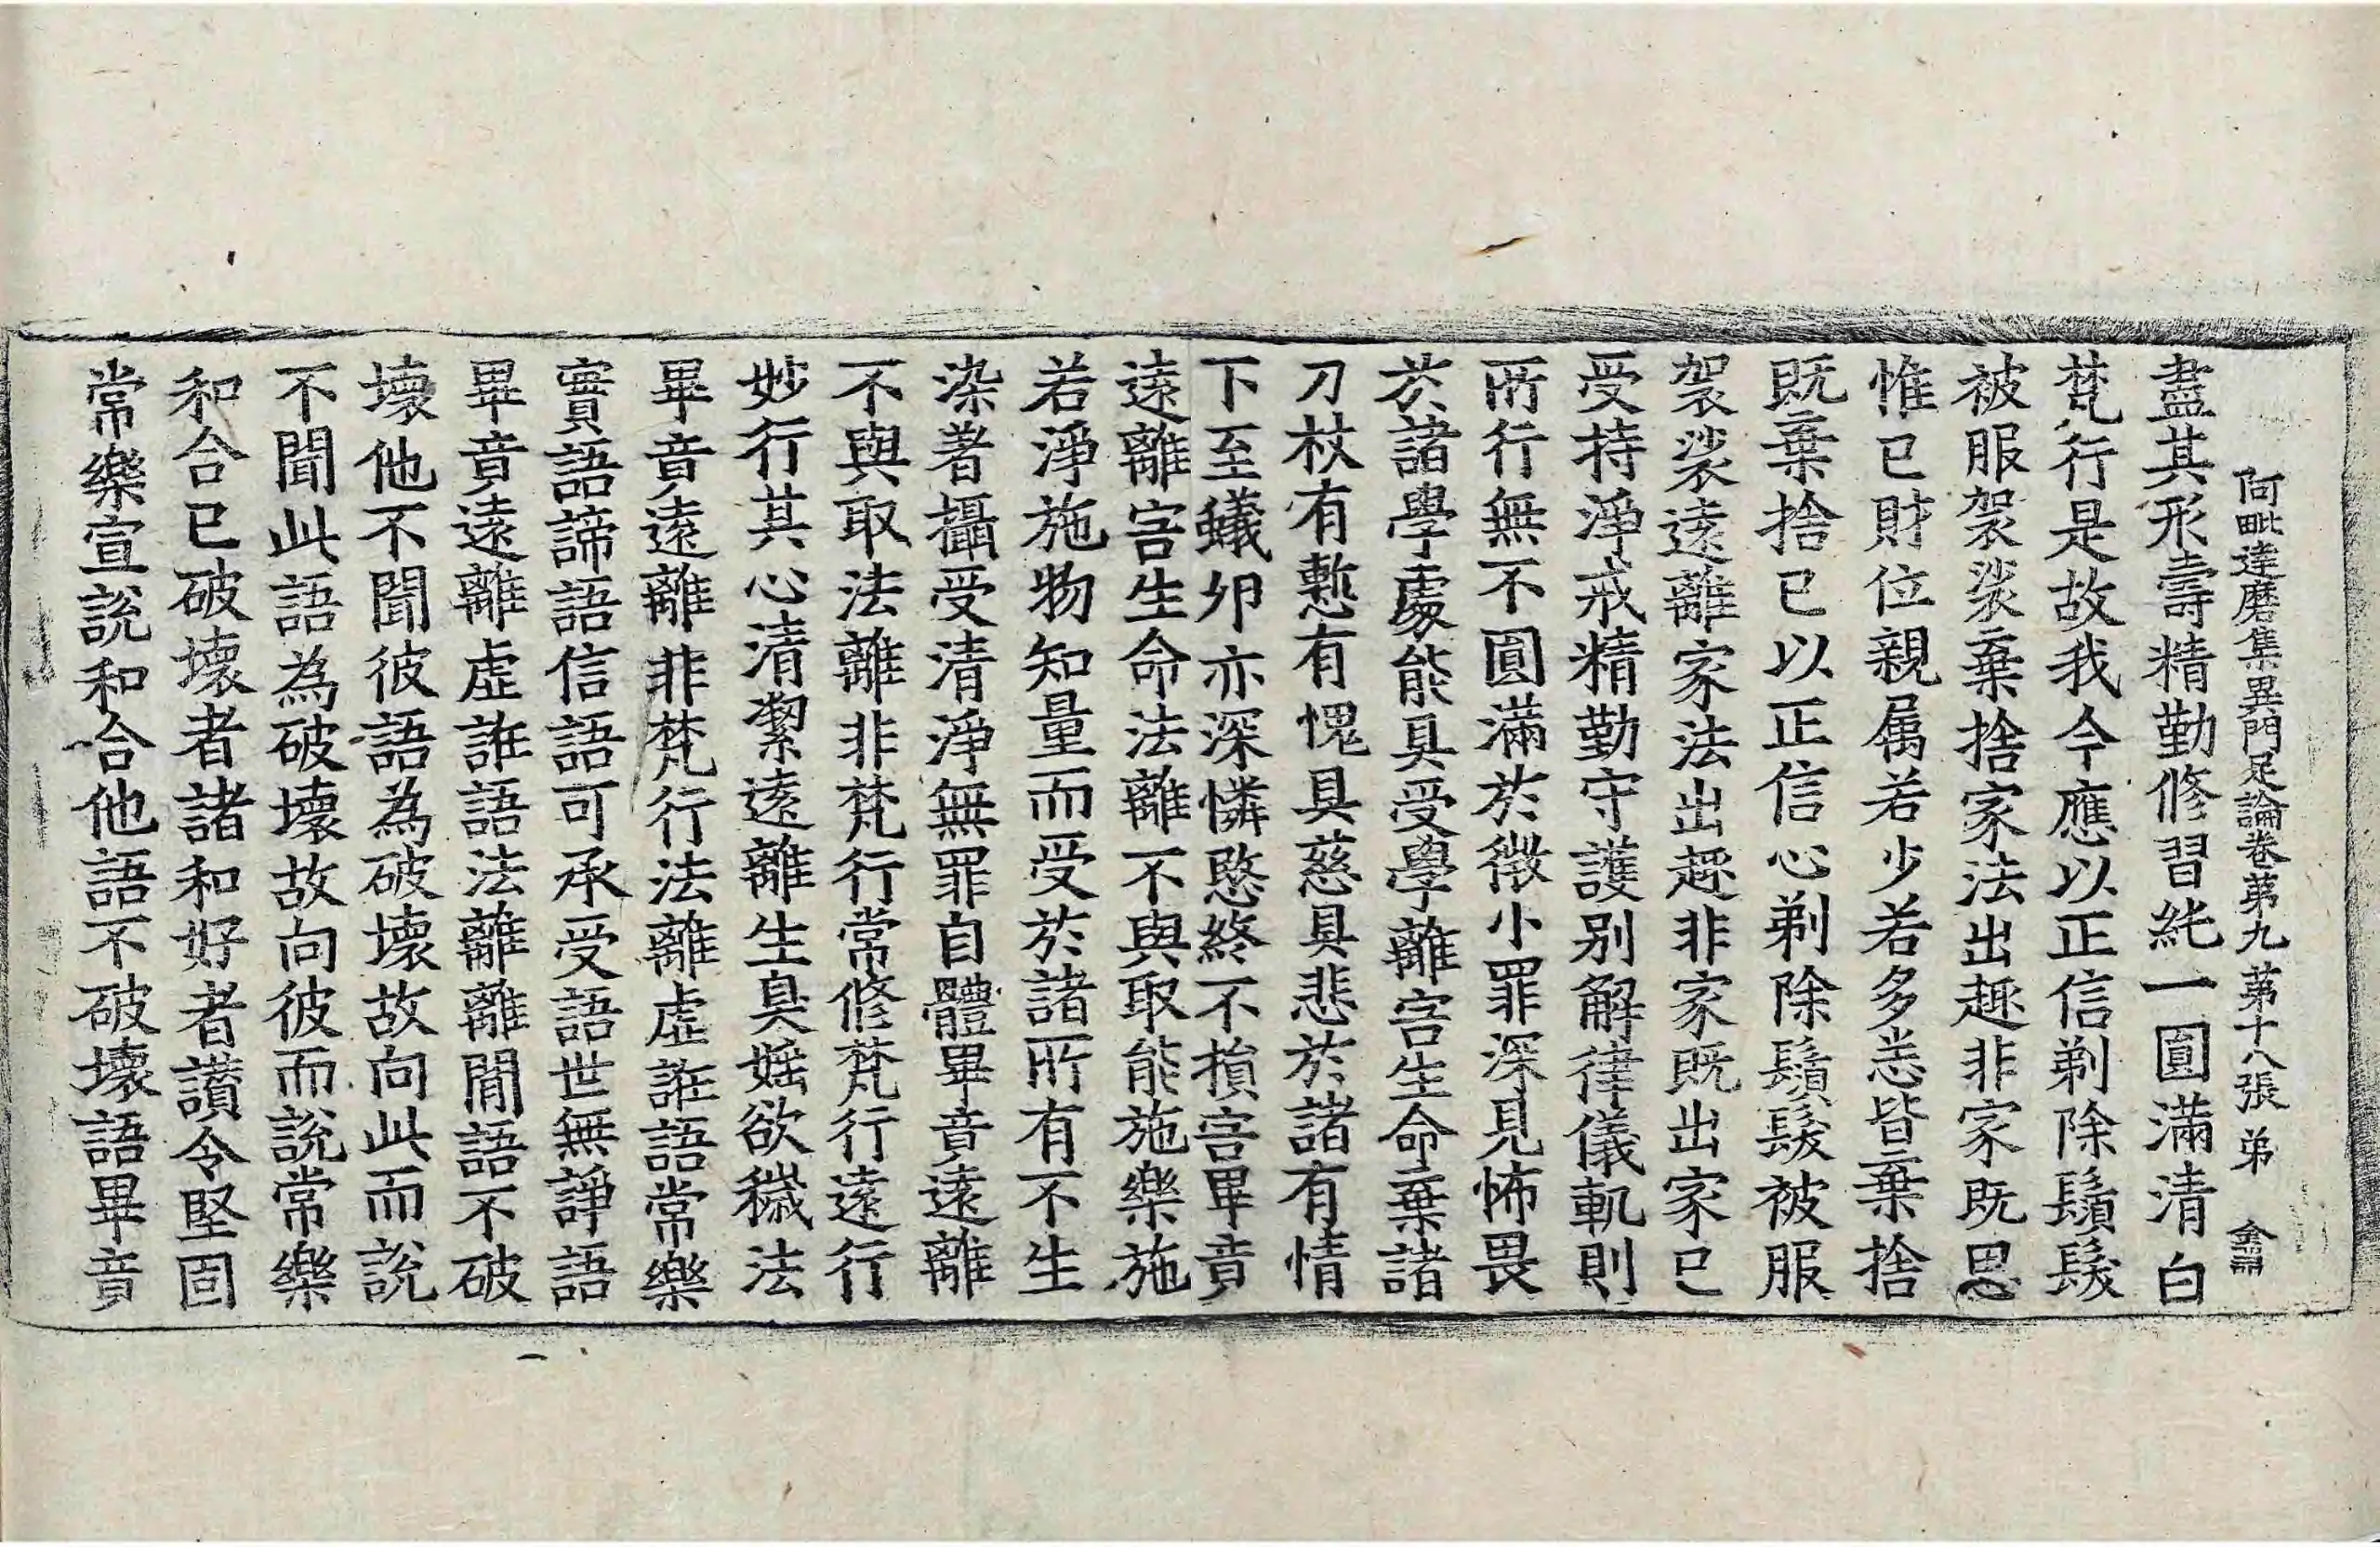 阿毗達磨集異門足論卷第九 第十八張 弟
盡其形壽精勤修習純一圓滿清白
梵行是故我今應以正信剃除鬚髮
被服袈裟棄捨家法出趣非家既思
惟已財位親属若少若多悉皆棄捨
既棄捨已以正信心剃除鬚髮被服
袈裟遠離家法出趣非家既出家已
受持淨戒精勤守護别解律儀軌則
所行無不圓滿於微小罪深見怖畏
於諸學處能具受學離害生命棄諸
刀杖有慙有愧具慈具悲於諸有情
下至蟻卵亦深憐愍終不損害畢竟
遠離害生命法離不與取能施樂施
若淨施物知量而受於諸所有不生
染著攝受清淨無罪自體畢竟遠離
不與取法離非梵行常修梵行遠行
妙行其心清潔遠離生臭婬欲穢法
畢竟遠離非梵行法離虛誑語常樂
實語諦語信語可承受語世無諍語
畢竟遠離虛誑語法離離間語不破
壞他不聞彼語為破壞故向此而說
不聞此語為破壞故向彼而說常樂
和合已破壞者諸和好者讚令堅固
常樂宣說和合他語不破壞語畢竟